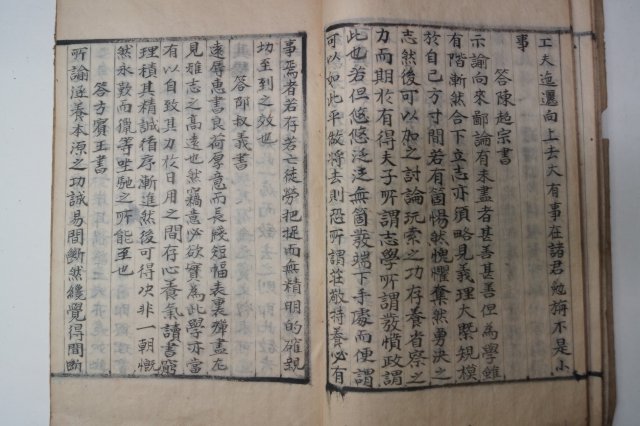 工夫迤邐向上去大有事在諸君勉旃不是小
事
答陳超宗書
示諭向來鄙論有未盡者甚善甚善但為學雖
有階漸然合下立志亦須略見義理大槩規模
於自己方寸間若有箇惕然愧懼奮然勇决之
志然後可以加之討論玩索之功存養省察之
力而期於有得夫子所謂志學所謂發憤政謂
此也若但悠悠泛泛無箇發端下手處而便謂
可以如此平做將去則恐所謂莊敬持養必有
事焉者若存若亡徒勞把捉而無精明的確親
切至到之效也
答邵叔義書
遠辱惠書良荷厚意而長牋短幅表裏殫盡尤
見雅志之高遠也然竊意必欲實為此學亦當
有以自致其力於日用之間存心養氣讀書窮
理積其精誠循序漸進然後可得决非一朝慨
然永歎而獵等坐馳之所能至也
答方賓王書
所諭涵養本源之功誠易間斷然纔覺得間斷